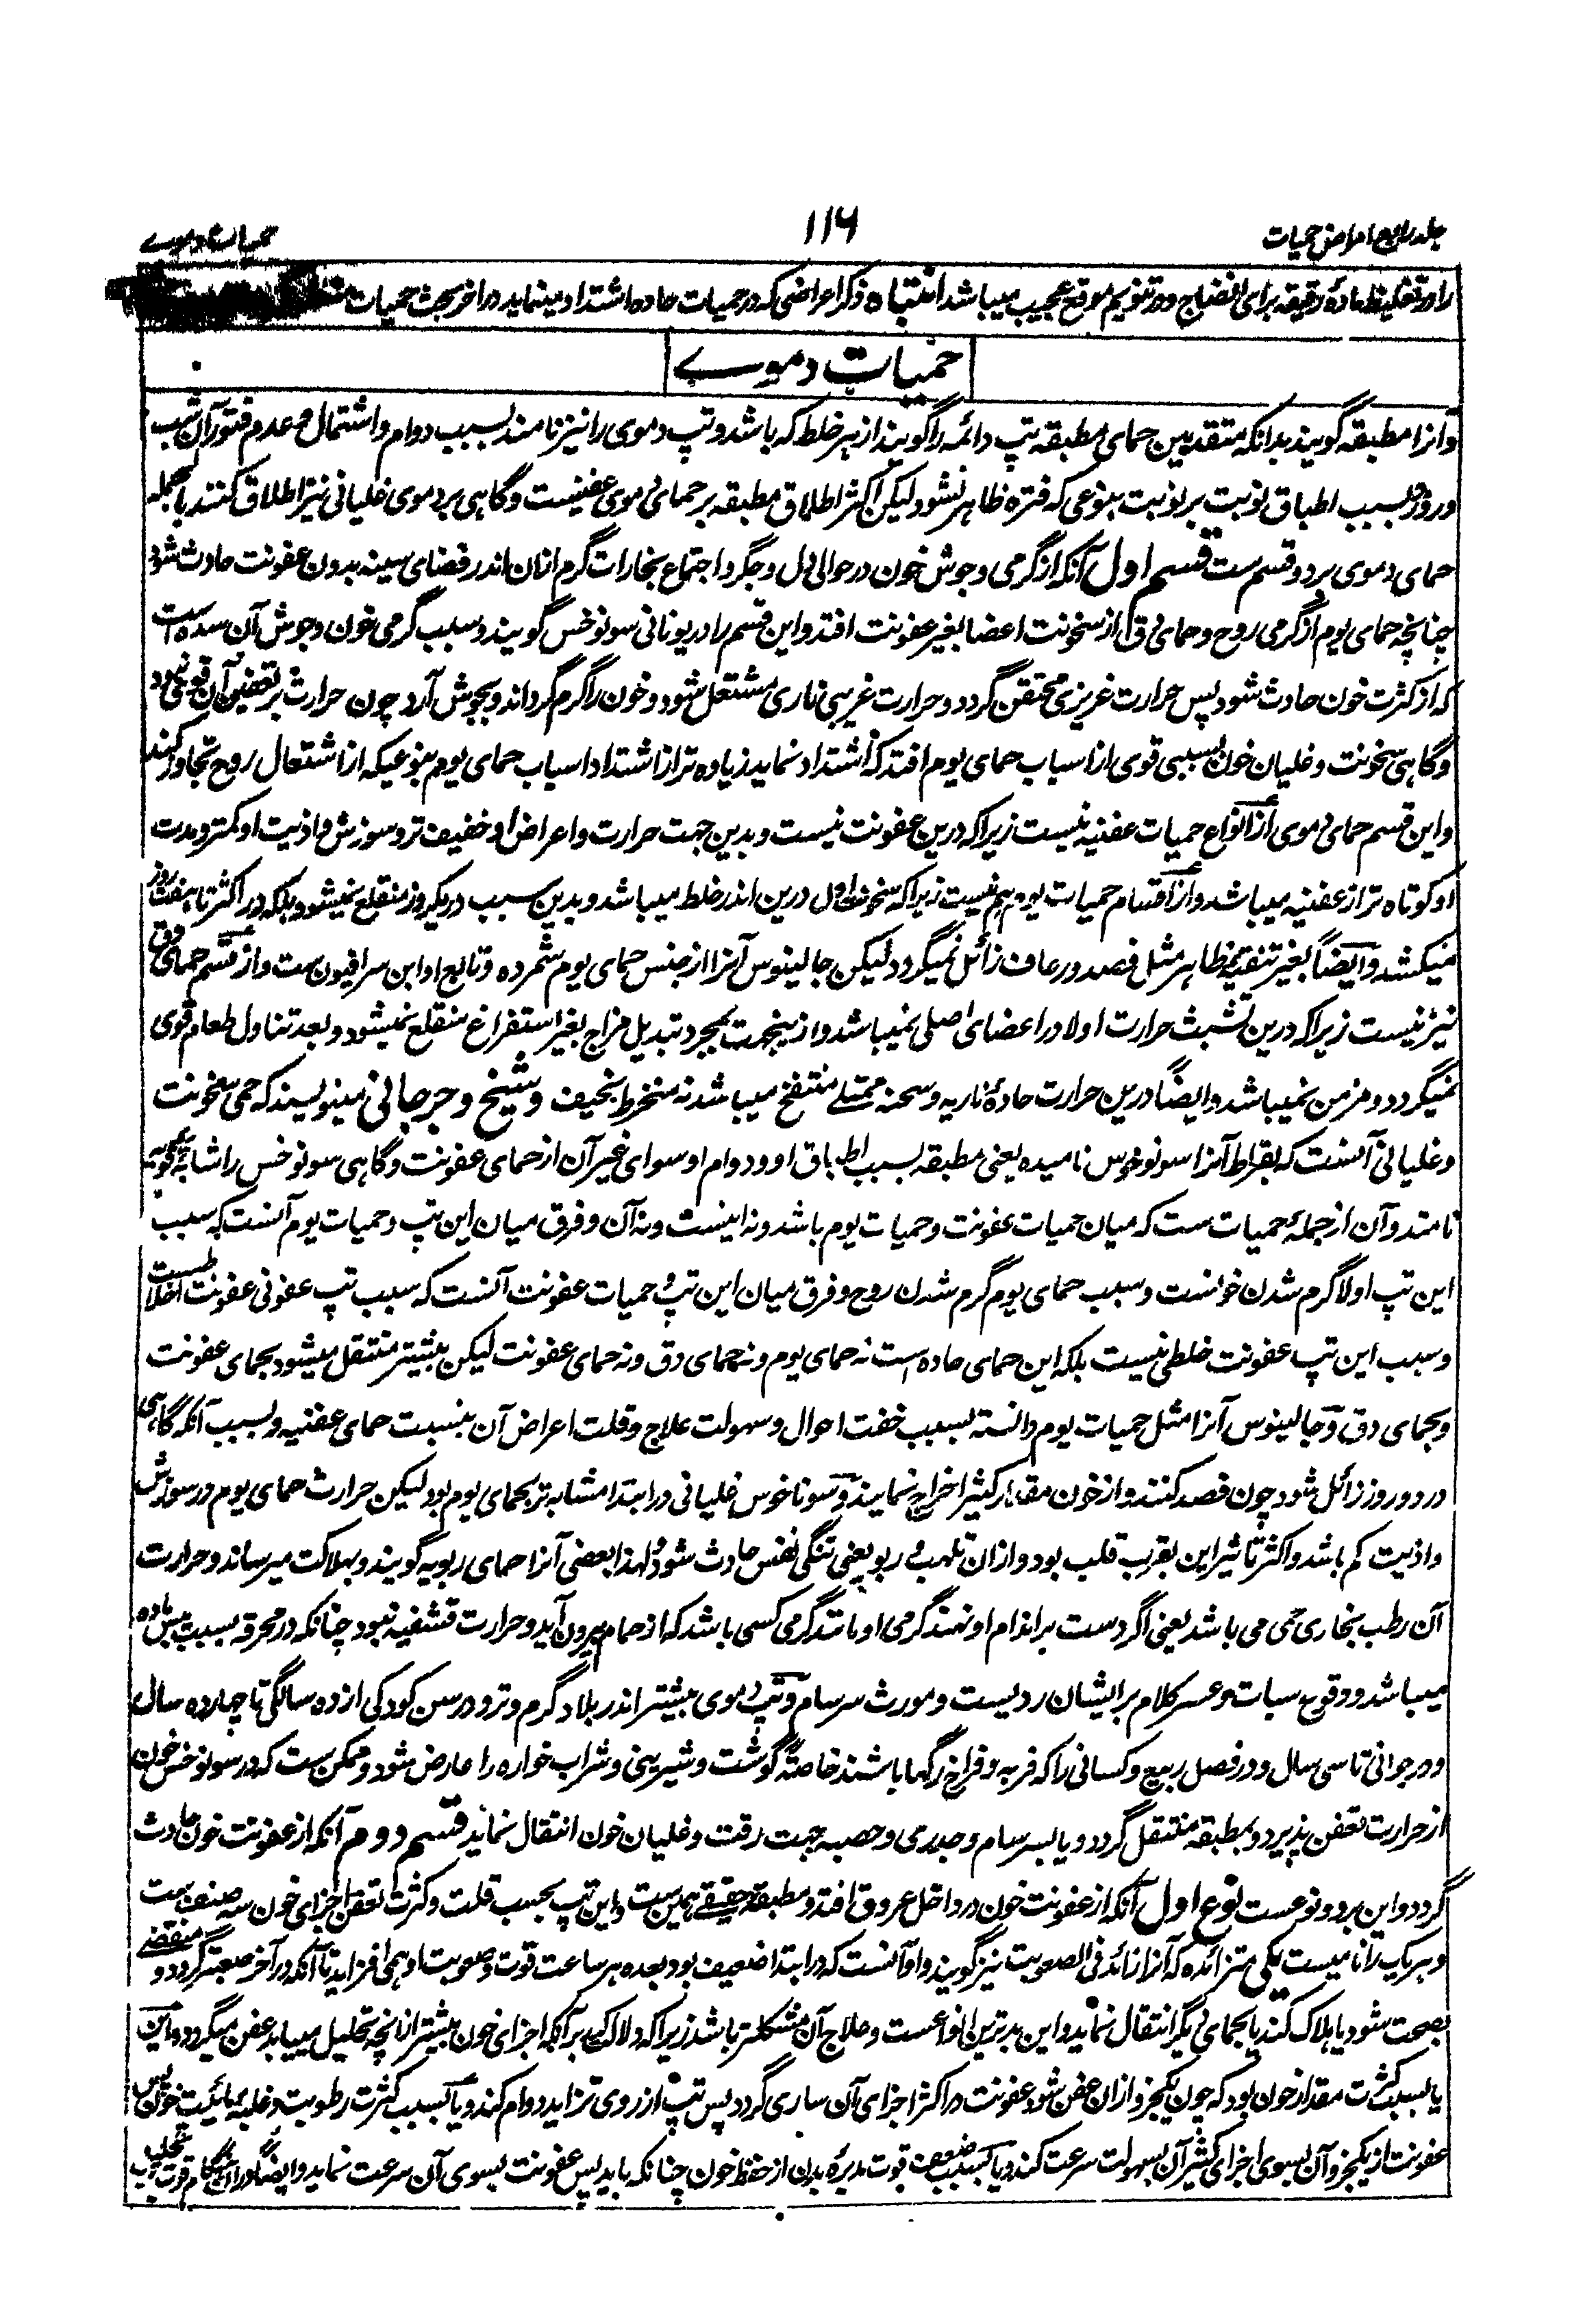 جلد رابع امراض حمیات
۱۱۶
حمیات دموے
را در تغلیظ مادۂ رقیقه برای انضاج و در تنویم موقع عجیب میباشد انتباه ذکر اعراضی که در حمیات حاده اشتداد مینماید در آخر بحث حمیات
حمیات دموے
و آنرا مطبقه گویند بدانکه متقدمین حمای مطبقه تپ دائمه را گویند از هر خلط که باشد و تپ دموی را نیز نامند بسبب دوام و اشتمال و عدم فتور آن شب
و روز و بسبب اطباق نوبت بر نوبت بنوعی که فتره ظاهر نشود لیکن اکثر اطلاق مطبقه بر حمای دموی عفنیست و گاهی بر دموی غلیانی نیز اطلاق کنند بالجمله
حمای دموی بر دو قسم ست قسم اول آنکه از گرمی و جوش خون در حوالی دل و جگر و اجتماع بخارات گرم ازان اندر فضای سینه بدون عفونت حادث شود
چنانچه حمای یوم از گرمی روح و حمای دق از سخونت اعضا بغیر عفونت افتد و این قسم را در یونانی سونوخس گویند و سبب گرمی خون و جوش آن سده است
که از کثرت خون حادث شود پس حرارت غریزی محتقن گردد و حرارت غریبی ناری مشتعل شود و خون را گرم گرداند و بجوش آرد چون حرارت بر تعفین آن قوی نبود
و گاهی سخونت و غلیان خون بسببی قوی از اسباب حمای یوم افتد که اشتداد نماید زیاده تر از اشتداد اسباب حمای یوم بنوعیکه از اشتعال روح تجاوز کند
و این قسم حمای دموی از انواع حمیات عفنیه نیست زیرا که درین عفونت نیست و بدین جهت حرارت و اعراض او خفیف تر و سوزش و اذیت او کمتر و مدت
او کوتاه تر از عفنیه میباشد و از اقسام حمیات یوم هم نیست زیرا که سخونت اول درین اندر خلط میباشد و بدین سبب در یکروز منقلع نمیشود بلکه در اکثر تا هفت روز
میکشد و ایضاً بغیر تنقیه ظاهر مثل فصد و رعاف زائل نمیگردد لیکن جالینوس آنرا از جنس حمای یوم شمرده و تابع او ابن سرافیون ست و از قسم حمای دق
نیز نیست زیرا که درین تشبث حرارت اولا در اعضای اصلی نمیباشد و ازینجهت بمجرد تبدیل مزاج بغیر استفراغ منقلع نمیشود و بعد تناول طعام قوی
نمیگردد و مزمن نمیباشد و ایضاً درین حرارت حادۂ ناریه و سحنه ممتلے منتفخ میباشد نه منخرط نحیف و شیخ و جرجانی مینویسند که حمی سخونت
و غلیانی آنست که بقراط آنرا سونوخوس نامیده یعنی مطبقه بسبب اطباق او و دوام او سوای غیر آن از حمای عفونت و گاهی سونوخس را
نامند و آن از جملۂ حمیات ست که میان حمیات عفونت و حمیات یوم باشد و نه اینست و نه آن و فرق میان این تپ و حمیات یوم آنست که سبب
این تپ اولا گرم شدن خونست و سبب حمای یوم گرم شدن روح و فرق میان این تپ و حمیات عفونت آنست که سبب تپ عفونی عفونت اخلاطست
و سبب این تپ عفونت خلطی نیست بلکه این حمای حاده است نه حمای یوم و نه حمای دق و نه حمای عفونت لیکن بیشتر منتقل میشود بحمای عفونت
و بحمای دق و جالینوس آنرا مثل حمیات یوم دانسته بسبب خفت احوال و سهولت علاج و قلت اعراض آن بنسبت حمای عفنیه و بسبب آنکه گاهی
در دو روز زائل شود چون فصد کنند و از خون مقدار کثیر اخراج نمایند و سوناخوس غلیانی در ابتدا مشابه تر بحمای یوم بود لیکن حرارت حمای یوم در سوزش
و اذیت کم باشد و اکثر تاثیر این بقرب قلب بود و ازان تلهب و ربو یعنی تنگی نفس حادث شود لهذا بعضی آنرا حمای ربویه گویند و بهلاکت میرساند و حرارت
آن رطب بخاری حمی می باشد یعنی اگر دست بر اندام او نهند گرمی او مانند گرمی کسی باشد که از حمام بیرون آید و حرارت قشفیه نبود چنانکه در محرقه بسبب یبس ماده
میباشد و وقوع سبات و عسر کلام بر ایشان ردیست و مورث سرسام و تپ دموی بیشتر اندر بلاد گرم و تر و در سن کودکی از ده سالگی تا چهارده سال
و در جوانی تا سی سال و در فصل ربیع و کسانی را که فربه و فراخ رگها باشند خاصتهً گوشت و شیرینی و شراب خواره را عارض شود و ممکن ست که در سونوخس خون
از حرارت تعفن پذیرد و بمطبقه منتقل گردد و یا بسرسام و جدری و حصبه بجهت رقت و غلیان خون انتقال نماید قسم دوم آنکه از عفونت خون حادث
گردد و این بر دو نوعست نوع اول آنکه از عفونت خون در داخل عروق افتد و مطبقه حقیقے همین ست و این تپ بحسب قلت و کثرت تعفن اجزای خون سه صنف ست
و هر یک را نامیست یکی متزائده که آنرا زائد فی الصعوبت نیز گویند و آنست که در ابتدا ضعیف بود بعده هر ساعت قوت و صعوبت او همی افزاید تا آنکه در آخر صعبتر گردد و منقضے
بصحت شود یا هلاک کند یا بحمای دیگر انتقال نماید و این بدترین انواعست و علاج آن مشکلتر باشد زیرا که دلالت کند برآنکه اجزای خون بیشتر از انچه تحلیل مییابد عفن میگردد و این
یا بسبب کثرت مقدار خون بود که چون یکجزو ازان عفن شود عفونت در اکثر اجزای آن ساری گردد پس تپ از روی تزاید دوام کند و یا بسبب کثرت رطوبت و غلبۂ مائیت خون پس
عفونت از یکجزو آن بسوی اجزای کثیر آن بسهولت سرعت کند و یا بسبب ضعف قوت مدبره بدن از حفظ خون چنانکه باید پس عفونت بسوی آن سرعت نماید و ایضاً